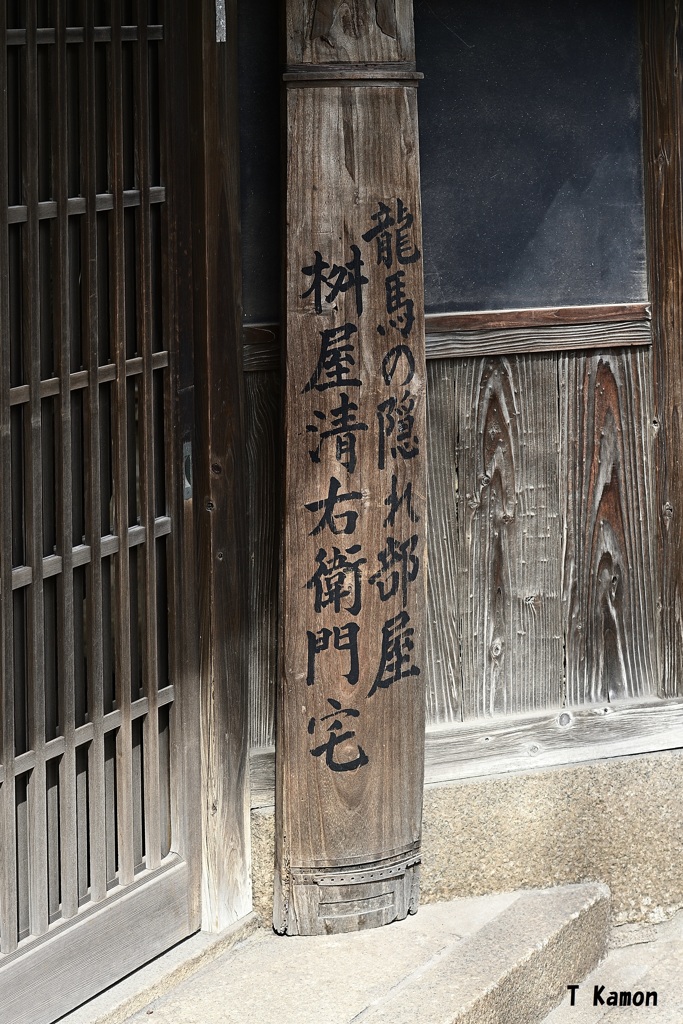 龍馬の隠れ部屋
桝屋清右衛門宅
T Kamon